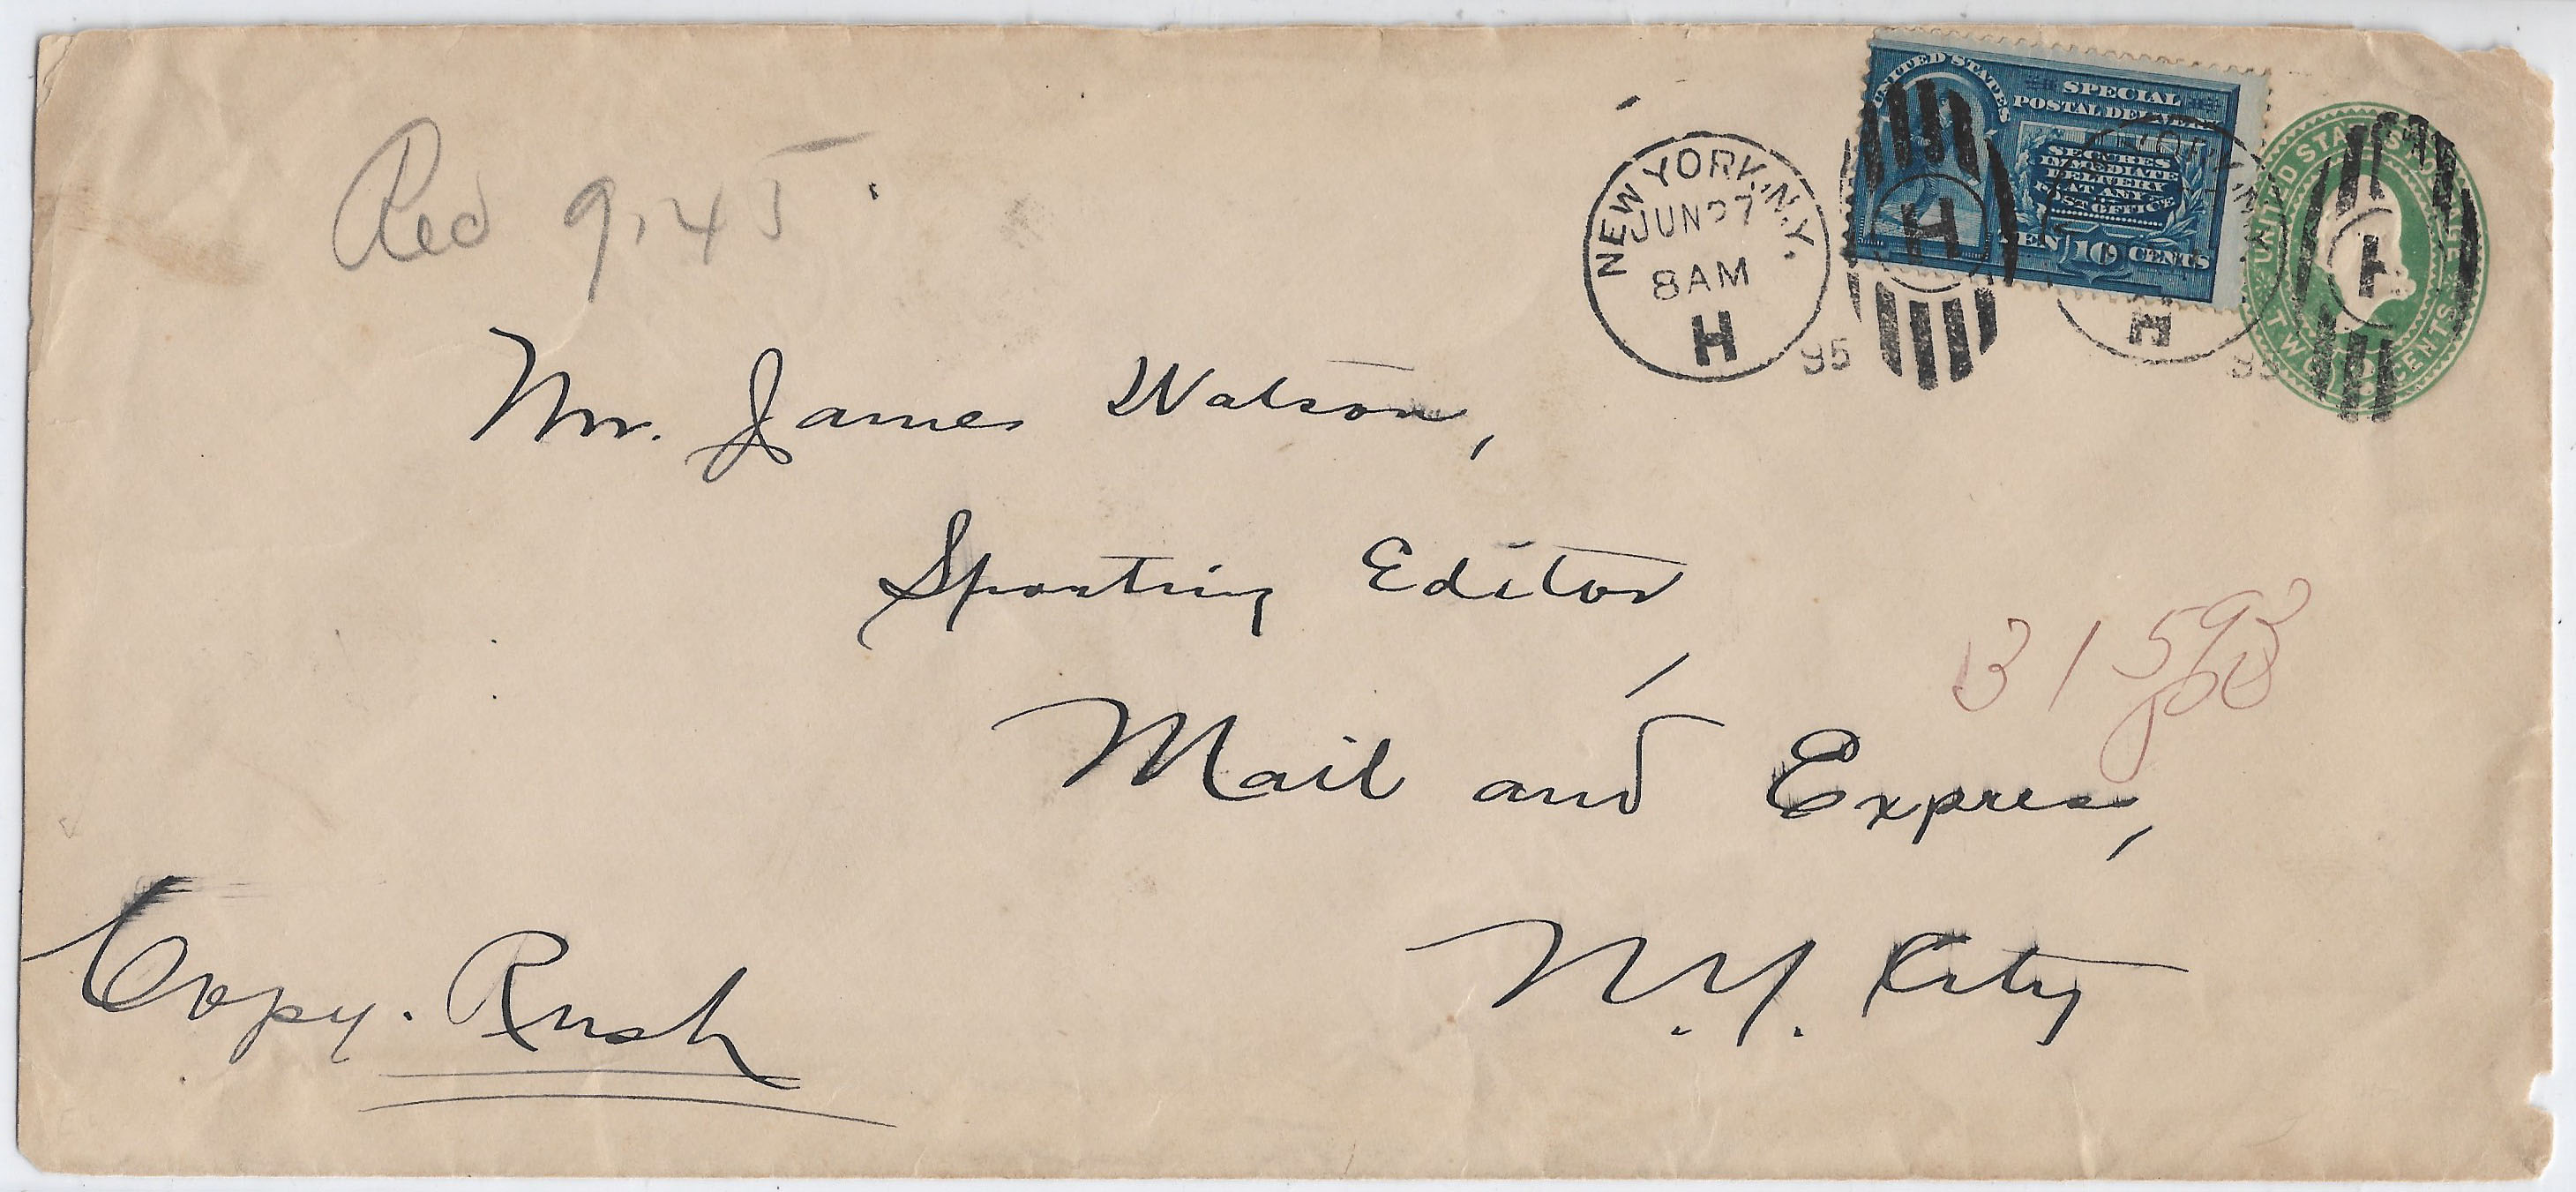 Rec 9.45
NEW YORK, N.Y.
JUN 27
8AM
H
95
H
UNITED STATES
SPECIAL
POSTAL DELIVERY
SECURES
IMMEDIATE
DELIVERY
AT ANY
POST OFFICE
TEN 10 CENTS
H
95
UNITED STATES POSTAGE
TWO CENTS
Mr. James Watson,
Sporting Editor,
31593
Mail and Express,
Copy. Rush
N.Y. City